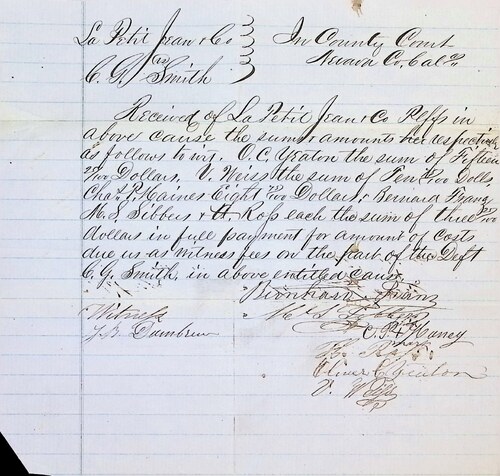 La Petit Jean & Co
vs
C. G. Smith
In County Court
Nevada Co. Cal.
Received of La Petit Jean & Co Plffs in
above cause the sums & amounts respectively
as follows to wit, O. C. Yeaton the sum of Fifteen
/100 Dollars. V. Weiss the sum of Ten /100 Dolls.
Chas. P. Haines Eight /100 Dollars: Bernard Franz
M. S. Sibbers & H Ross each the sum of three /100
dollars in full payment for amount of costs
due us as witness fees on the part of the Deft
C. G. Smith, in above entitled cause.
Franz
Witness
M. S.
C. P. Haney
Ross
Oliver C Yeaton
V. Weiss